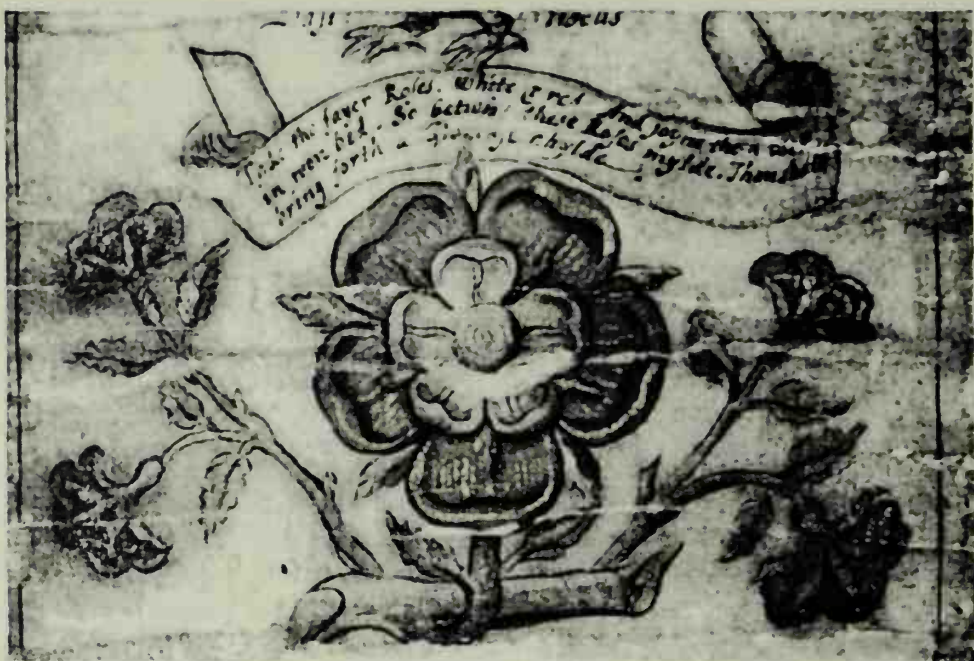 Take the fayer Roses, White & red And joyne them
in won bed. So betwin these Roses mylde. Thou shalt
bring forth a chylde